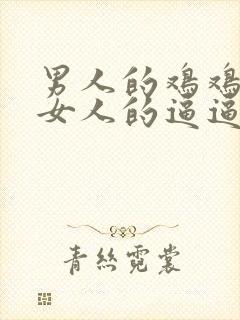 男人的鸡鸡
女人的逼逼
青丝霓裳